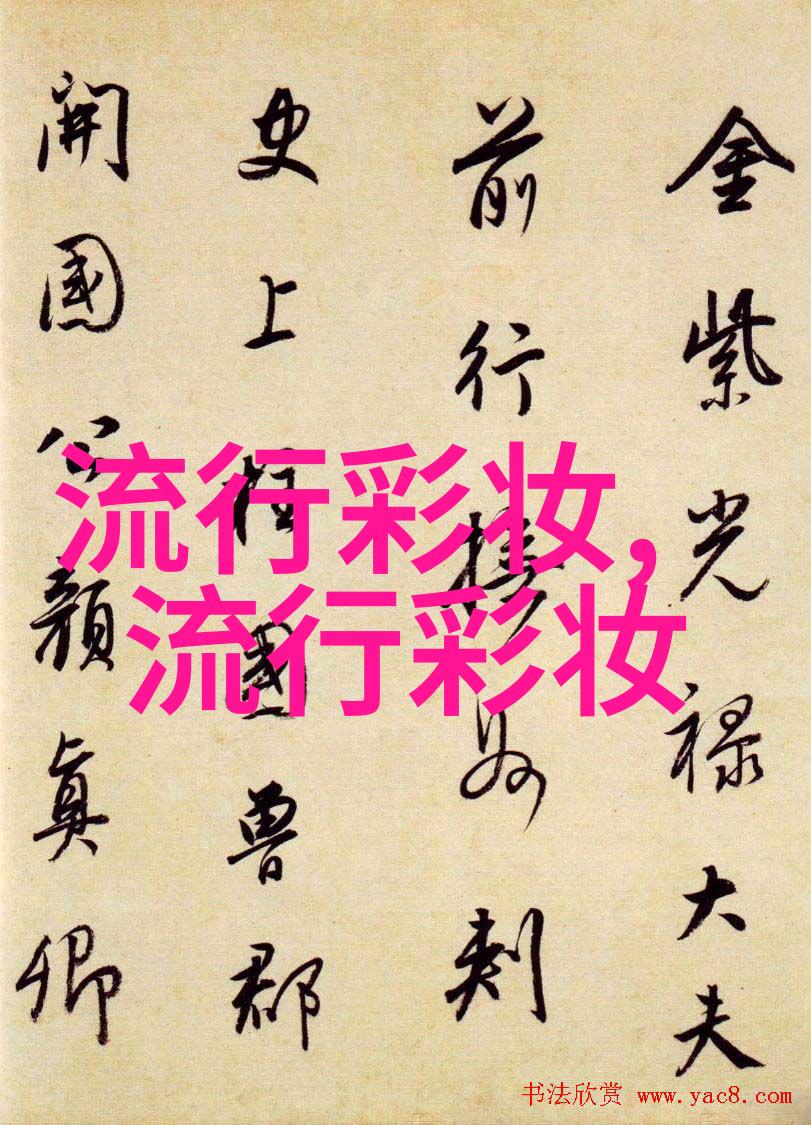 金紫光禄大夫
前行撫州刺
史上柱國魯郡
開國公顔真卿
流行彩妆,
流行彩妆
书法欣赏 www.yac8.com